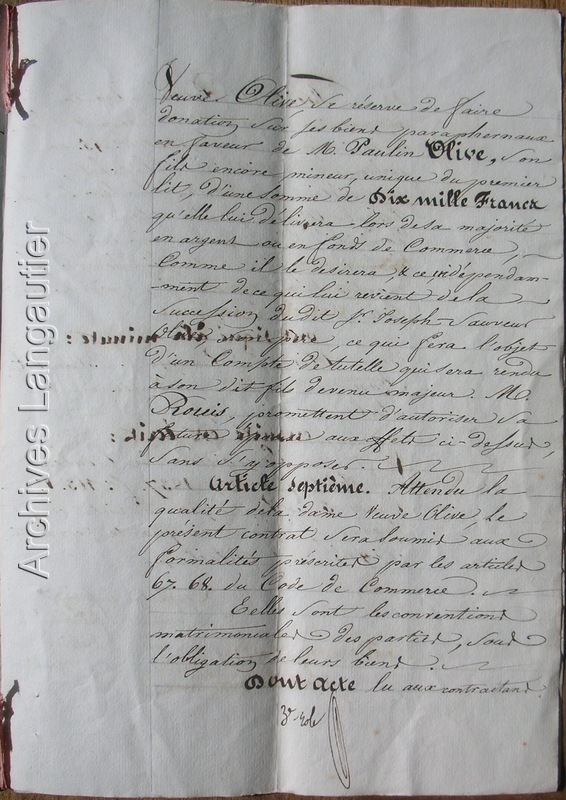 Veuve Olive, se réserve de faire
donation sur ses biens paraphernaux
en faveur de M. Paulin Olive, son
fils encore mineur, unique du premier
lit, d'une somme de Dix mille Francs
qu'elle lui delivrera lors de sa majorité
en argent ou en fonds de Commerce,
Comme il le desirera & ce, independam-
-ment de ce qui lui revient de la
Succession du dit Sr. Joseph Sauveur
Olive son père, ce qui fera l'objet
d'un Compte de tutelle qui sera rendu
à son dit fils devenu majeur. M.
promettent d'autoriser sa
future aux effets ci-dessus,
sans s'y opposer.
Article Septième. Attendu la
qualité de la dame Veuve Olive le
présent contrat sera soumis aux
formalités préscrites par les articles
67. 68. du Code de Commerce.
Telles sont les conventions
matrimoniales des parties, sous
l'obligation de leurs biens.
Dont Acte lu aux contractans
3e. role
Archives Langautier